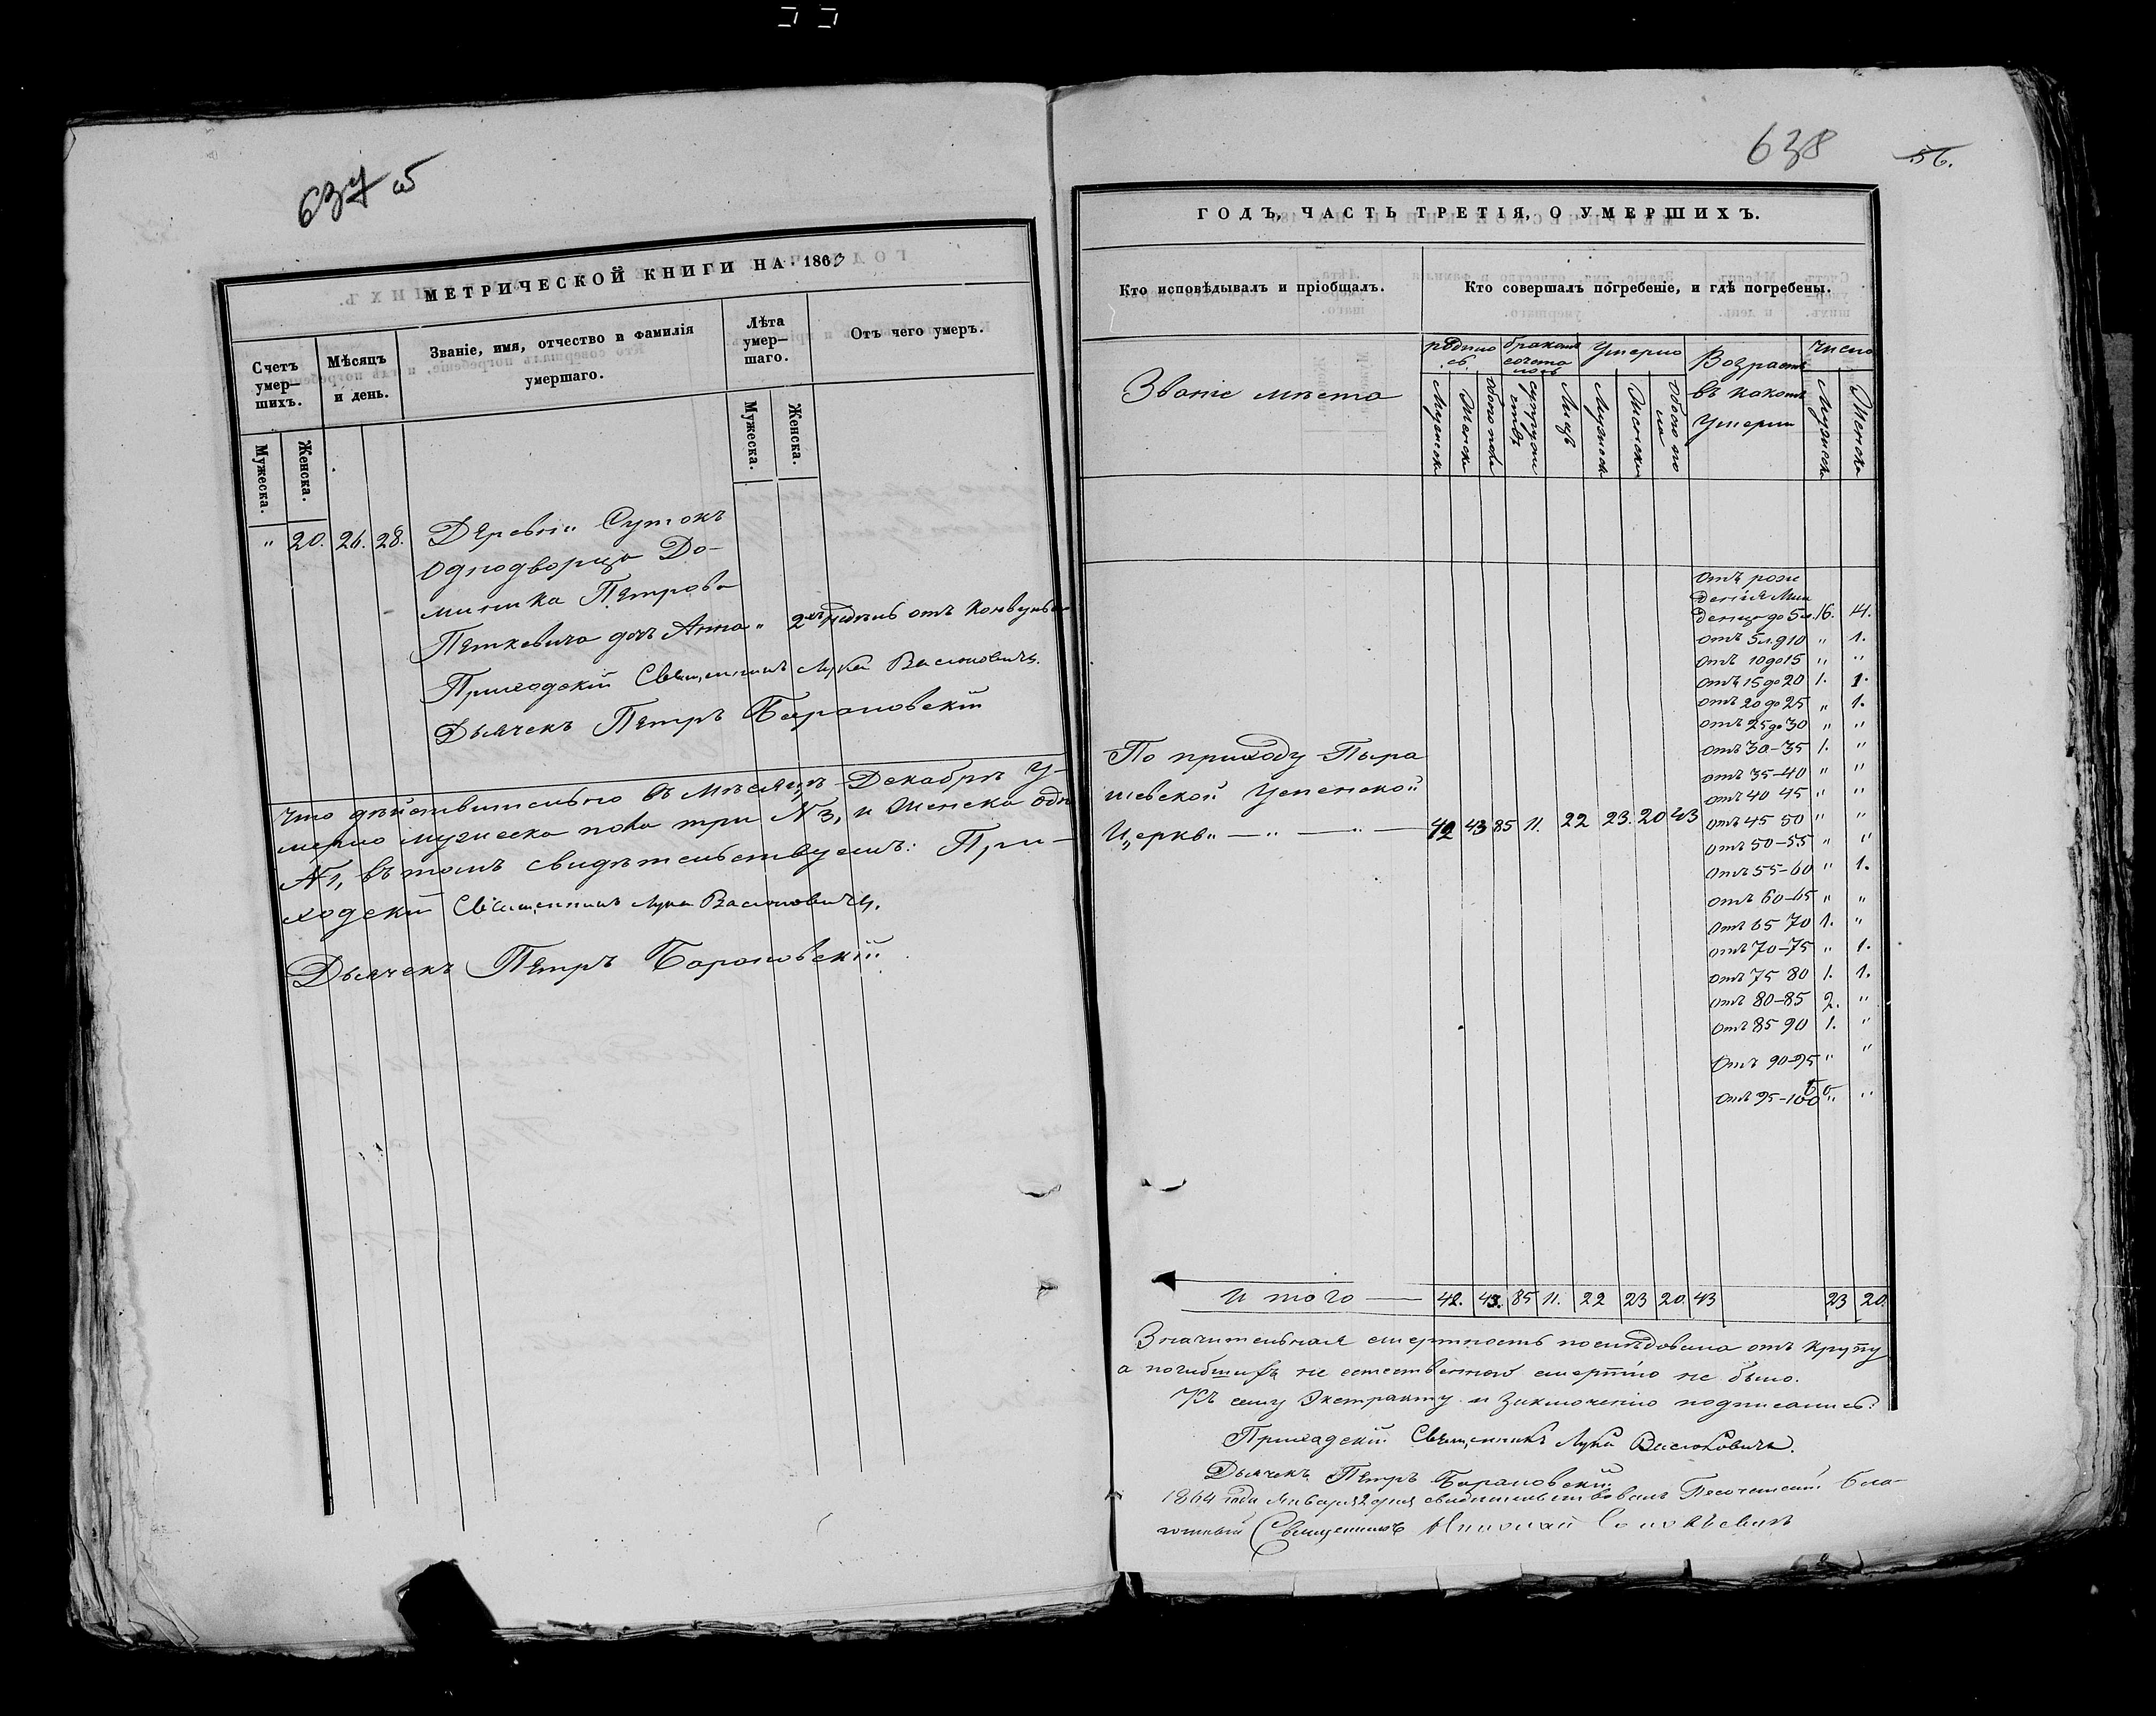 637 об
МЕТРИЧЕСКОЙ КНИГИ НА 1863
Счетъ умер-шихъ.
Мѣсяцъ и день.
Званіе, имя, отчество и фамилія умершаго.
Лѣта умер-шаго.
Отъ чего умеръ.
Мужеска. Женска.
Мужеска. Женска.
" 20. 26. 28. Деревни Сутокъ
Однодворца До-
миника Петрова
Петкевича дочь Анна " 2хъ недѣль отъ Конвульсіи
Приходскій Священникъ Лука Васюковичъ.
Дьячекъ Петръ Барановскій
Что дѣйствительно въ Мѣсяцѣ Декабрѣ У-
мерло мужеска пола три №3, и Женска одн
№1, въ томъ свидѣтельствуемъ: При-
ходскій Священникъ Лука Васюковичъ.
Дьячекъ Петръ Барановскій
638
56.
ГОДЪ, ЧАСТЬ ТРЕТІЯ, О УМЕРШИХЪ.
Кто исповѣдывалъ и пріобщалъ.
Кто совершалъ погребеніе, и гдѣ погребены.
Званіе мѣста
родило сь.
бракомъ сочета лось
Умерло
Возрастъ въ какомъ Умерли
Число
Мужеска Женска Обоего пола Супружествъ Лицъ Мужеска Женска Обоего по ла
Мужеска Женска
Отъ рож
денія Мла
денцо до 5 л. 16. 14.
Отъ 5 л. д 10 " 1.
Отъ 10 до 15 " "
Отъ 15 до 20 1. 1.
Отъ 20 до 25 " 1.
Отъ 25 до 30 " "
Отъ 30-35 1. "
Отъ 35-40 " "
Отъ 40 45 " "
Отъ 45 50 " "
Отъ 50-55 " "
Отъ 55-60 " 1.
Отъ 60-65 " "
Отъ 65 70 1. "
Отъ 70-75 " 1.
Отъ 75 80 1. 1.
Отъ 80-85 2. "
Отъ 85 90 1. "
Отъ 90-95 " "
Отъ 95-100 " "
По приходу Пыра
шевской Успенской
Церкви — " — " — 42 43 85 11. 22 23. 20 43
Итого — 42. 43. 85 11. 22 23 20. 43 23 20.
Значительная смертность послѣдовала отъ крупу
а погибшихъ не естественною смертію не было.
Къ сему Экстракту и Заключенію подписались:
Приходскій Священникъ Лука Васюковичъ.
Дьячекъ Петръ Барановскій
1864 года Января 2 дня свидѣтельствовалъ Бла-
гочинный Священникъ Николай